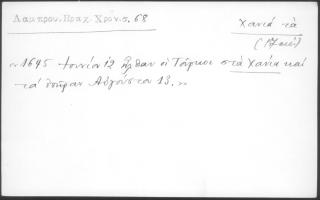 Λαμπρου.Βραχ.Χρόν.σ. 68
Χανιά τὰ
(17 αἰών)
« 1645 Ἰουνίου 12 ἦλθαν οἱ Τοῦρκοι στὰ Χανία καὶ
τά πῆραν Αὐγούστου 13. »